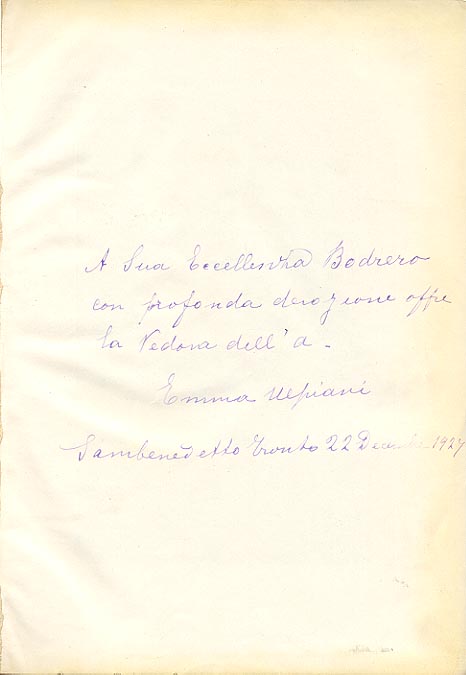 A Sua Eccellenza Bodrero
con profonda devozione offre
la Vedova dell'a -
Emma Ulpiani
Sambenedetto Tronto 22 Decembre 1927